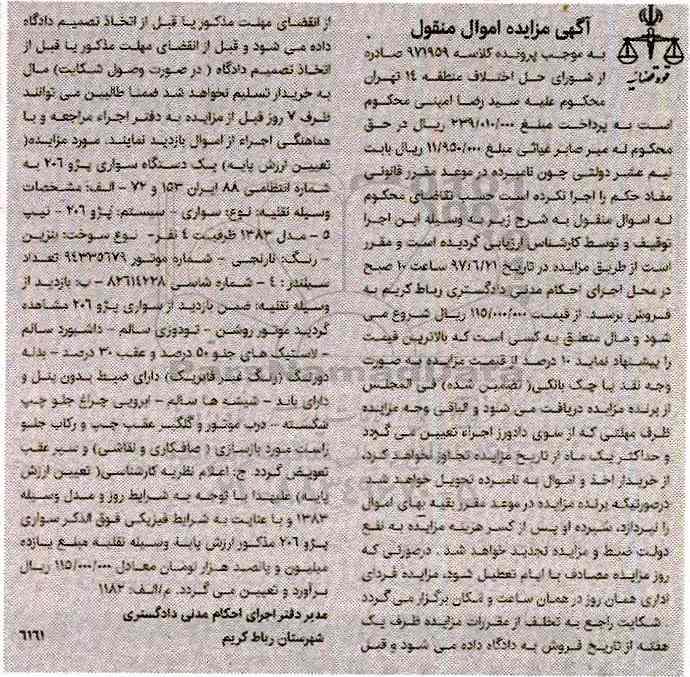 آگهی مزایده اموال منقول
قوه قضائیه
به موجب پرونده کلاسه ۹۷۱۹۵۹ صادره
از شورای حل اختلاف منطقه ۱۴ تهران
محکوم علیه سید رضا امینی محکوم
است به پرداخت مبلغ ۲۳۹/۰۱۰/۰۰۰ ریال در حق
محکوم له میر صابر غیاثی مبلغ ۱۱/۹۵۰/۰۰۰ ریال بابت
نیم عشر دولتی چون نامبرده در موعد مقرر قانونی
مفاد حکم را اجرا نکرده است حسب تقاضای محکوم
له اموال منقول به شرح زیر به وسیله این اجرا
توقیف و توسط کارشناس ارزیابی گردیده است و مقرر
است از طریق مزایده در تاریخ ۹۷/۶/۲۱ ساعت ۱۰ صبح
در محل اجرای احکام مدنی دادگستری رباط کریم به
فروش برسد. از قیمت ۱۱۵/۰۰۰/۰۰۰ ریال شروع می
شود و مال متعلق به کسی است که بالاترین قیمت
را پیشنهاد نماید ۱۰ درصد از قیمت مزایده به صورت
وجه نقد یا چک بانکی( تضمین شده) فی المجلس
از برنده مزایده دریافت می شود و الباقی وجه مزایده
ظرف مهلتی که از سوی دادورز اجراء تعیین می گردد
و حداکثر یک ماه از تاریخ مزایده تجاوز نخواهد کرد،
از خریدار اخذ و اموال به نامبرده تحویل خواهد شد.
درصورتیکه برنده مزایده در موعد مقرر بقیه بهای اموال
را نپردازد، سپرده او پس از کسر هزینه مزایده به نفع
دولت ضبط و مزایده تجدید خواهد شد . درصورتی که
روز مزایده مصادف با ایام تعطیل شود، مزایده فردای
اداری همان روز در همان ساعت و مکان برگزار می گردد
. شکایت راجع به تخلف از مقررات مزایده ظرف یک
هفته از تاریخ فروش به دادگاه داده می شود و قبل
از انقضای مهلت مذکور یا قبل از اتخاذ تصمیم دادگاه
داده می شود و قبل از انقضای مهلت مذکور یا قبل از
اتخاذ تصمیم دادگاه ( در صورت وصول شکایت) مال
به خریدار تسلیم نخواهد شد ضمنا طالبین می توانند
ظرف ۷ روز قبل از مزایده به دفتر اجراء مراجعه و با
هماهنگی اجراء از اموال بازدید نمایند. مورد مزایده(
تعیین ارزش پایه) یک دستگاه سواری پژو ۲۰۶ به
شماره انتظامی ۸۸ ایران ۱۵۳ و ۷۲ - الف: مشخصات
وسیله نقلیه: نوع: سواری - سیستم: پژو ۲۰۶ - تیپ
۵ - مدل ۱۳۸۳ ظرفیت ۴ نفر- نوع سوخت: بنزین
- رنگ: نارنجی - شماره موتور ۹۴۳۳۵۶۷۹ تعداد
سیلندر: ۴ - شماره شاسی ۸۲۶۱۴۲۲۸ - ب: بازدید از
وسیله نقلیه: ضمن بازدید از سواری پژو ۲۰۶ مشاهده
گردید موتور روشن - تودوزی سالم - داشبورد سالم
- لاستیک های جلو ۵۰ درصد و عقب ۳۰ درصد - بدنه
دورنگ (رنگ غیر فابریک) دارای ضبط بدون پنل و
دارای باند - شیشه ها سالم - ابرویی چراغ جلو چپ
شکسته - درب موتور و گلگیر عقب چپ و رکاب جلو
راست مورد بازسازی ( صافکاری و نقاشی) و سپر عقب
تعویض گردد. ج: اعلام نظریه کارشناسی( تعیین ارزش
پایه) علیهذا با توجه به شرایط روز و مدل وسیله
۱۳۸۳ و با عنایت به شرایط فیزیکی فوق الذکر سواری
پژو ۲۰۶ مذکور ارزش پایه وسیله نقلیه مبلغ یازده
میلیون و پانصد هزار تومان معادل ۱۱۵/۰۰۰/۰۰۰ ریال
برآورد و تعیین می گردد. م/الف: ۱۱۸۲
مدیر دفتر اجرای احکام مدنی دادگستری
شهرستان رباط کریم
۶۱۶۱